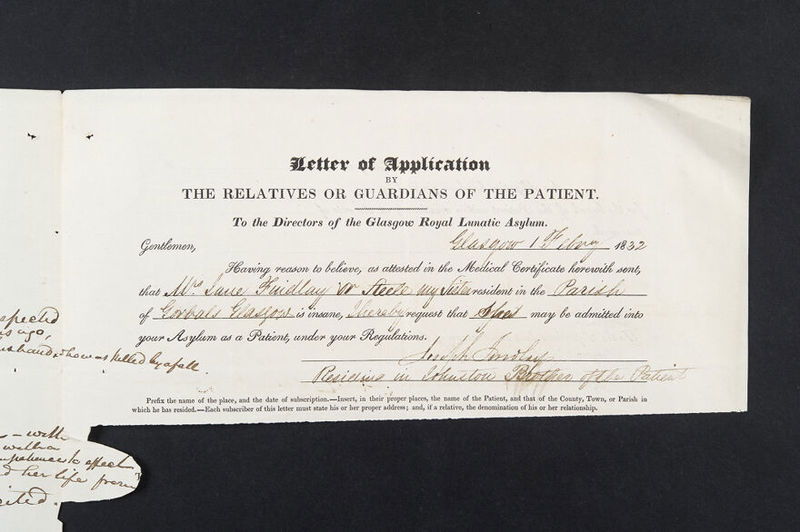 Letter of Application
BY
THE RELATIVES OR GUARDIANS OF THE PATIENT.
To the Directors of the Glasgow Royal Lunatic Asylum.
Gentlemen, Glasgow 1 Febry 1832
Having reason to believe, as attested in the Medical Certificate herewith sent,
that Mrs Jane Findlay or Steele my Sister resident in the Parish
of Gorbals Glasgow is insane, I hereby request that She may be admitted into
your Asylum as a Patient, under your Regulations.
Joseph Findlay
Residing in Johnston Brother of the Patient
Prefix the name of the place, and the date of subscription.—Insert, in their proper places, the name of the Patient, and that of the County, Town, or Parish in
which he has resided.—Each subscriber of this letter must state his or her proper address; and, if a relative, the denomination of his or her relationship.
ago,
husband who was killed by a fall.
with
with a
to effect
her life from